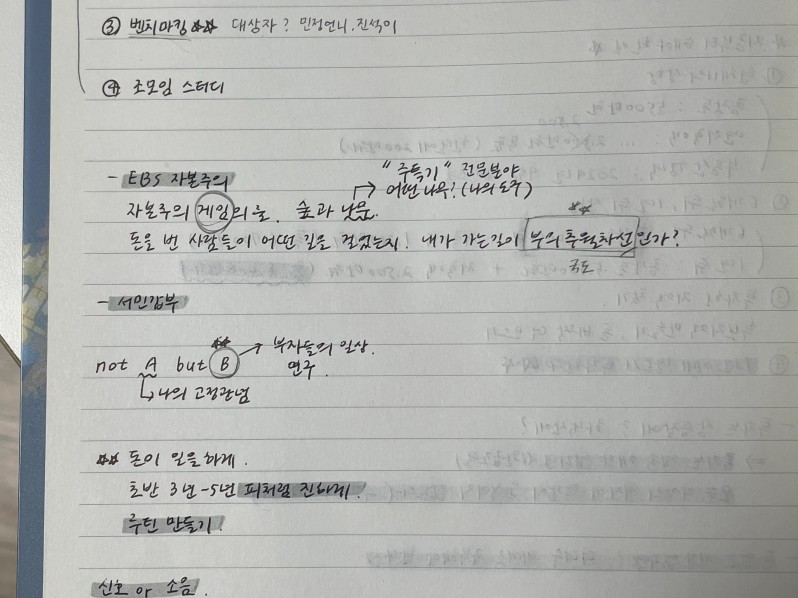 ③ 벤치마킹 ☆☆ 대상자? 민정언니. 진석이
④ 조모임 스터디
- EBS 자본주의
"주특기" 전문분야
→ 어떤나무? (나의 도구)
자본주의 게임의 룰. 숲과 나무.
☆☆
돈을 번 사람들이 어떤 길을 걸었는지! 내가 가는길이 부의추월차선인가?
국도
- 서민갑부
☆☆
not A but B → 부자들의 일상.
연구.
↳ 나의 고정관념
☆☆ 돈이 일을하게.
초반 3년-5년 피처럼 진하게!
루틴 만들기!
신호 or 소음.